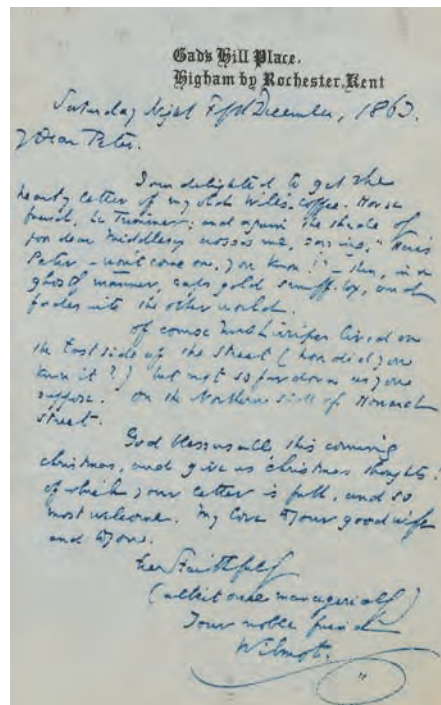 Gad's Hill Place.
Higham by Rochester, Kent
Saturday Night Fifth December, 1863.
My Dear Peter.
I am delighted to get the
hearty letter of my old Will's-Coffee-House
friend, and again the shade of
poor dear crosses me, saying, "Here's
Peter, - won't come on, you know!" - then, in a
ghostly manner, gold snuff-box, and
fades into the other world.
Of course Mrs Lirriper lived on
the East side of the street (how did you
know it?) but not so far down as you
suppose. On the Northern side of Howard
Street.
God bless us all this coming
Christmas, and give us Christmas thoughts!
of which your letter is full, and so
most welcome. My love to your good wife
and to you.
Ever Faithfully
(albeit managerially)
Your noble friend
Wilmot.